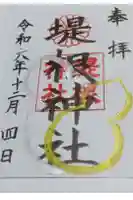 奉拝
堤根神社
令和六年十二月四日